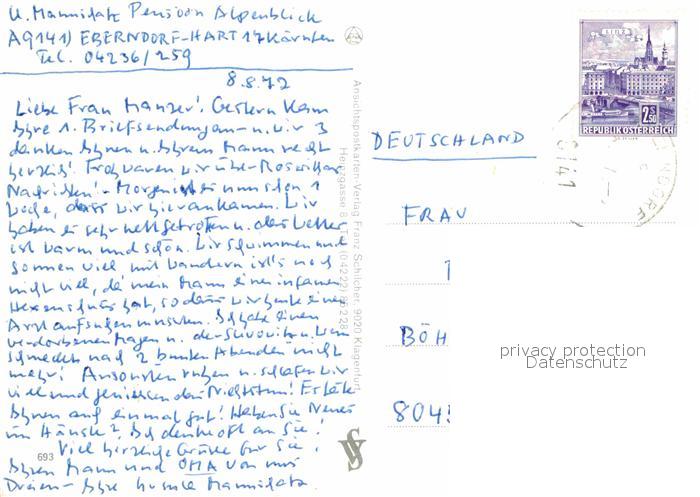 Pension Alpenblick
A9141) EBERNDORF-HART 17 Kärnten
Tel. 04236/259
8.8.72
Liebe Frau Manzer! Gestern kam
Ihre 1. Briefsendung an u. wir 3
danken Ihnen u. Ihrem Mann recht
herzlich! Froh waren wir über
Nachrichten! - Morgen ist es nun schon 1
Woche, dass wir hier ankamen. Wir
haben es sehr nett getroffen u. das Wetter
ist warm und schön. Wir schwimmen und
sonnen viel, mit Wandern ist's noch
nicht viel, da mein Mann einen infamen
Hexenschuss hat, sodass wir heute einen
Arzt aufsuchen mussten. Ich habe einen
verdorbenen Magen u. der Slivovitz u. Wein
schmecken nach 2 bunten Abenden nicht
mehr! Ansonsten ruhen u. schlafen wir
viel und geniessen das Nichtstun! Es täte
Ihnen auf einmal gut! Haben Sie Neues
im Häusle? Ich denke oft an Sie!
Viel herzliche Grüsse für Sie,
Ihren Mann und OMA von uns
Dreien - Ihre
693
Ansichtspostkarten-Verlag Franz Schilcher, 9020 Klagenfurt,
VS
LINZ
2.50 S
REPUBLIK ÖSTERREICH
9141
DEUTSCHLAND
FRAU
1
BÖH
804
privacy protection
Datenschutz